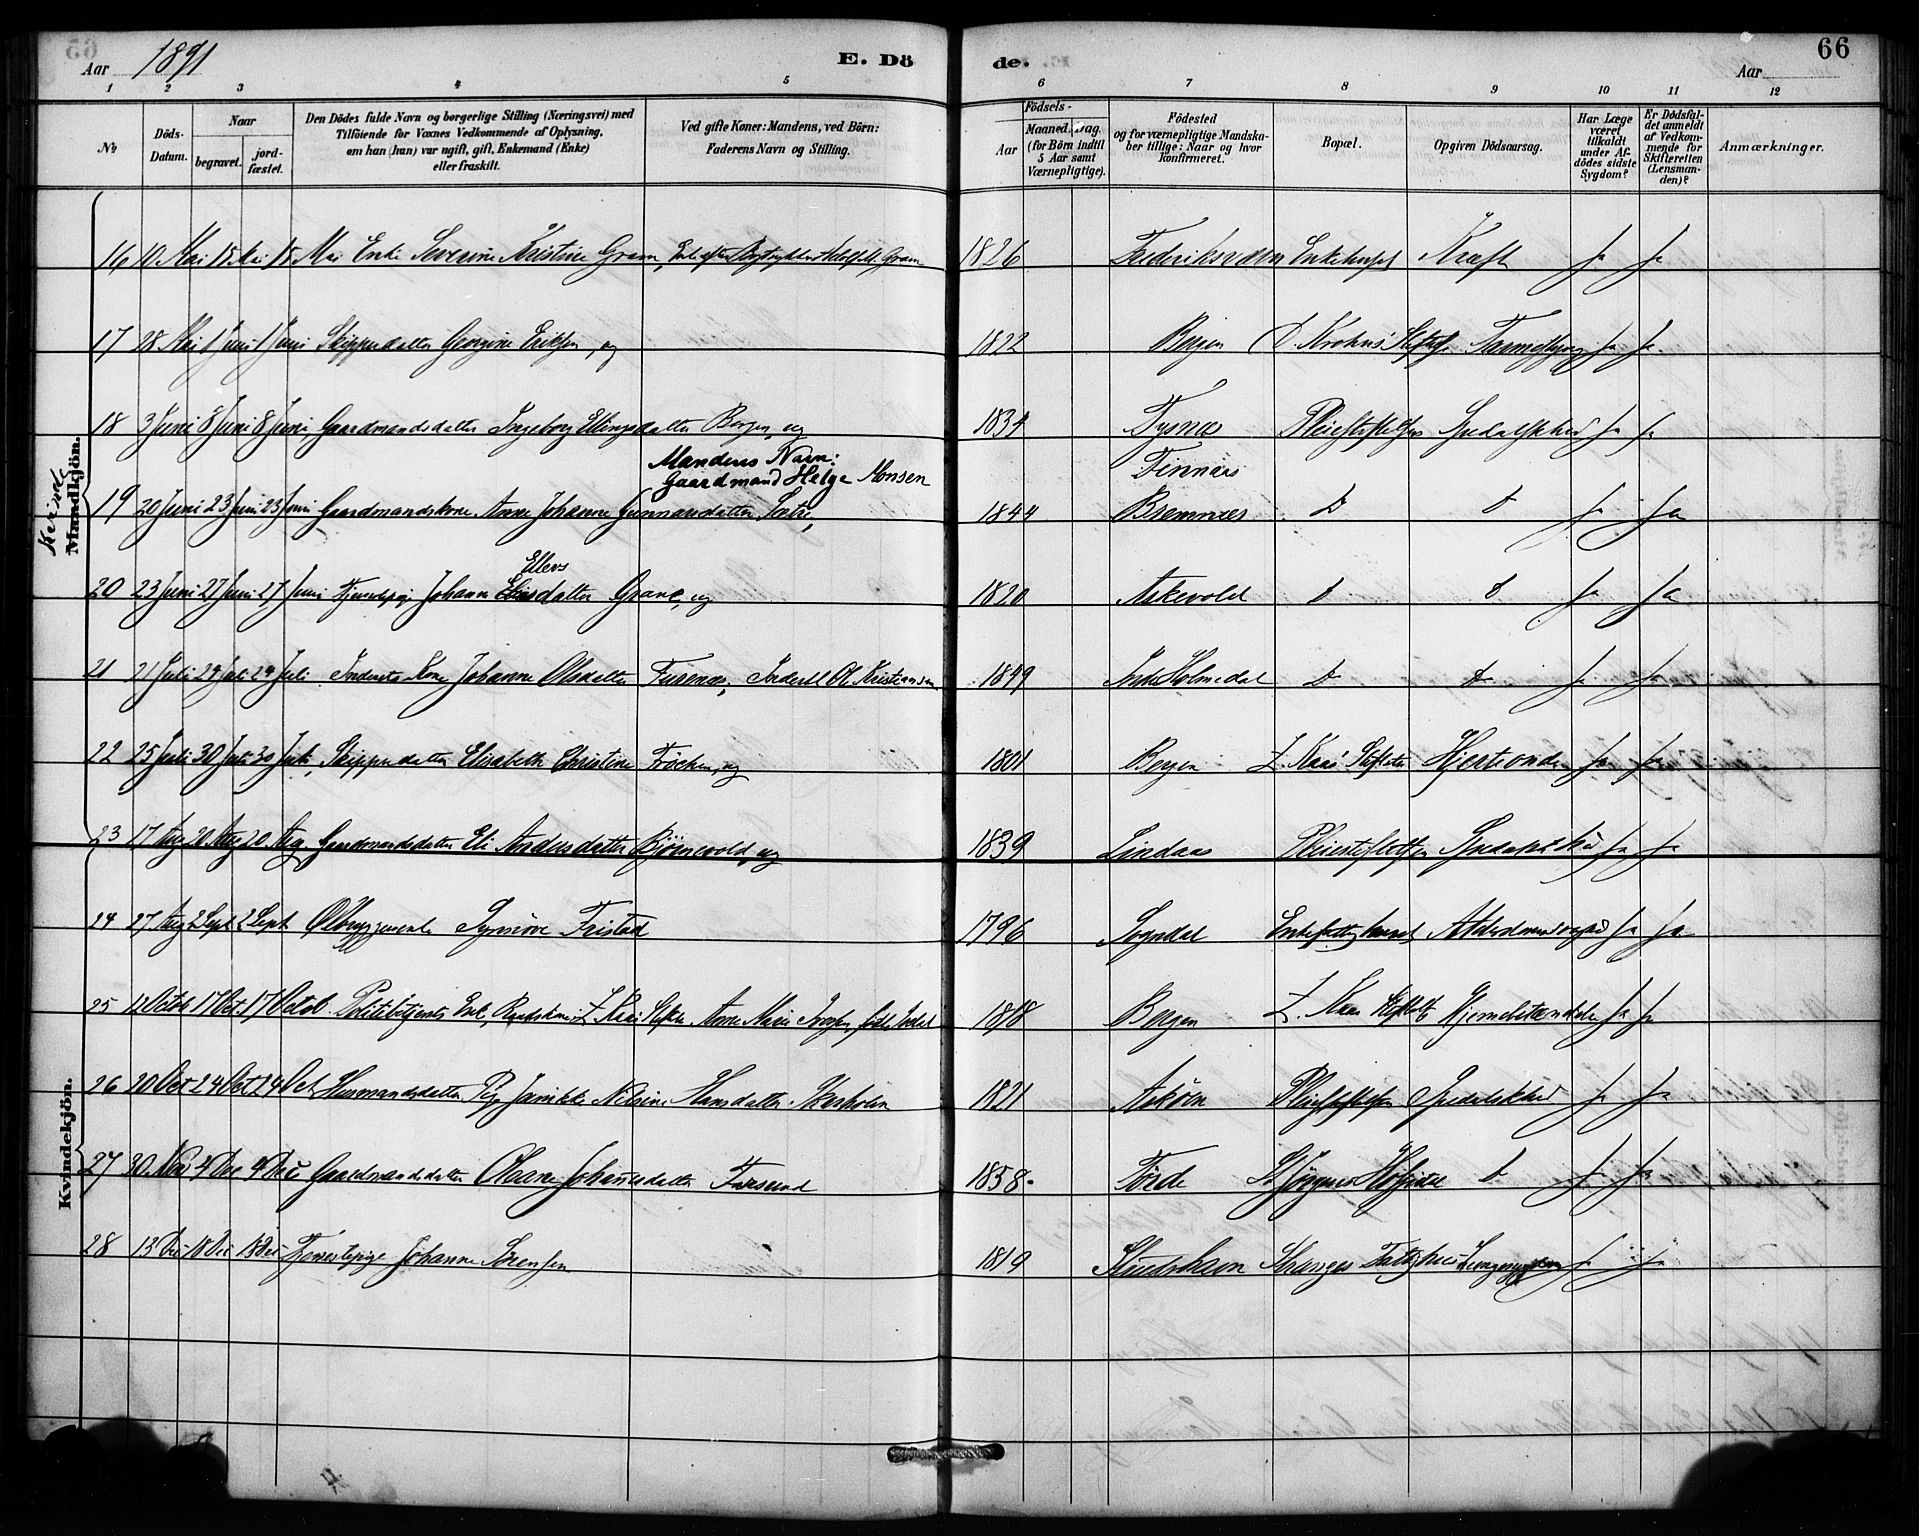 Aar 1891 E. Dö de. Aar 66
1 2 3 4 5 6 7 8 9 10 11 12
No Döds-Datum. Naar begravet. jord-fæstet. Den Dödes fulde Navn og borgerlige Stilling (Næringsvei) med Tilföiende for Voxnes Vedkommende af Oplysning, om han (hun) var ugift, gift, Enkemand (Enke) eller fraskilt. Ved gifte Koner: Mandens, ved Börn: Faderens Navn og Stilling. Födsels- Aar Maaned. Dag. (for Börn indtil 5 Aar samt Værnepligtige). Födested og for værnepligtige Mandska-ber tillige: Naar og hvor konfirmeret. Bopæl. Opgiven Dödsaarsag. Har Læge været tilkaldt under Af-dödes sidste Sygdom? Er Dödsfal-det anmeldt af Vedkom-mende for Skifteretten (Lensman-den)? Anmærkninger.
Kvinde Mandkjön.
16 10 Mai 15 Mai 15 Mai Enke Severine Kristine Gram, 1826 Kræft Ja Ja
17 28 Mai 1 Juni 1 Juni Skipperdatter Georgine Eriksen, ug 1822 Bergen D. Krohns Stiftelse Ja Ja
18 3 Juni 8 Juni 8 Juni Gaardmandsdatter Ingeborg Ellingsdatter Borgen, ug 1834 Tysnæs Pleiestiftelsen Spedalskhed Ja Ja
Mandens Navn: Finnaas
Gaardmand Helge Monsen
19 20 Juni 23 Juni 23 Juni Gaardmandskone Anne Johanne Gunnarsdatter 1844 Bremnæs D D Ja Ja
Ellevs
20 23 Juni 27 Juni 27 Juni Johanne datter Grane, ug 1820 Askevold D D Ja Ja
21 21 Juli 24 Juli 24 Juli Inderst Kone Johanne Olsdatter Furenæs, Inderst Ol. Kristiansen 1849 Indre Holmedal D D Ja Ja
22 25 Juli 30 Juli 30 Juli Skipperdatter Elisabeth Christine Fröchen, ug 1801 Bergen Z. Kaas Stiftelse Hjerteonde Ja Ja
23 17 Aug 20 Aug 20 Aug Gaardmandsdatter Eli Andersdatter Bjørnevold, ug 1839 Lindaas Pleiestiftelsen Spedalskhed Ja Ja
24 27 Aug 2 Sept 2 Sept Synnöve Fristad 1796 Sogndal Enkefattighuset Alderdomssvaghed Ja Ja
25 12 Octob 17 Oct. 17 Octob Politibetjents Enke, Z. Kaas Stiftelse Anne Marie 1818 Bergen Z. Kaas Stiftelse Ja Ja
Kvindekjön.
26 20 Oct 24 Oct 24 Oct Husmandsdatter Pige Jannikke Nilsine Hansdatter 1821 Askøen Pleiestiftelsen Spedalskhed Ja Ja
27 30 Nov 4 Dec 4 Dec Gaardmandsdatter Oliane Johannesdatter Farsund 1858. Förde St Jörgens Hospital D Ja Ja
28 13 Dec 18 Dec 18 Dec Tjenestepige Johanne Sörensen 1819 Stranges Fattighus Ja Ja